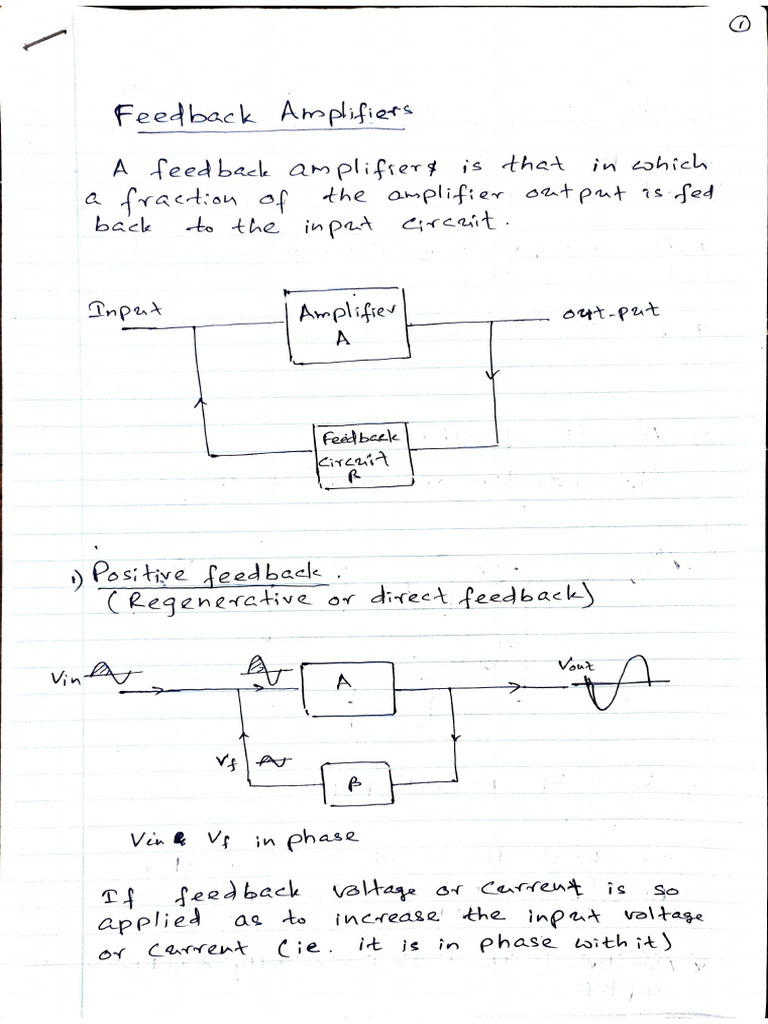 1
Feedback Amplifiers
A feedback amplifiers is that in which
a fraction of the amplifier output is fed
back to the input circuit.
Input
Amplifier
A
out-put
Feedback
circuit
β
1) Positive feedback.
(Regenerative or direct feedback)
Vin
A
Vout
Vf
β
Vin & Vf in phase
If feedback voltage or current is so
applied as to increase the input voltage
or current (ie. it is in phase with it)